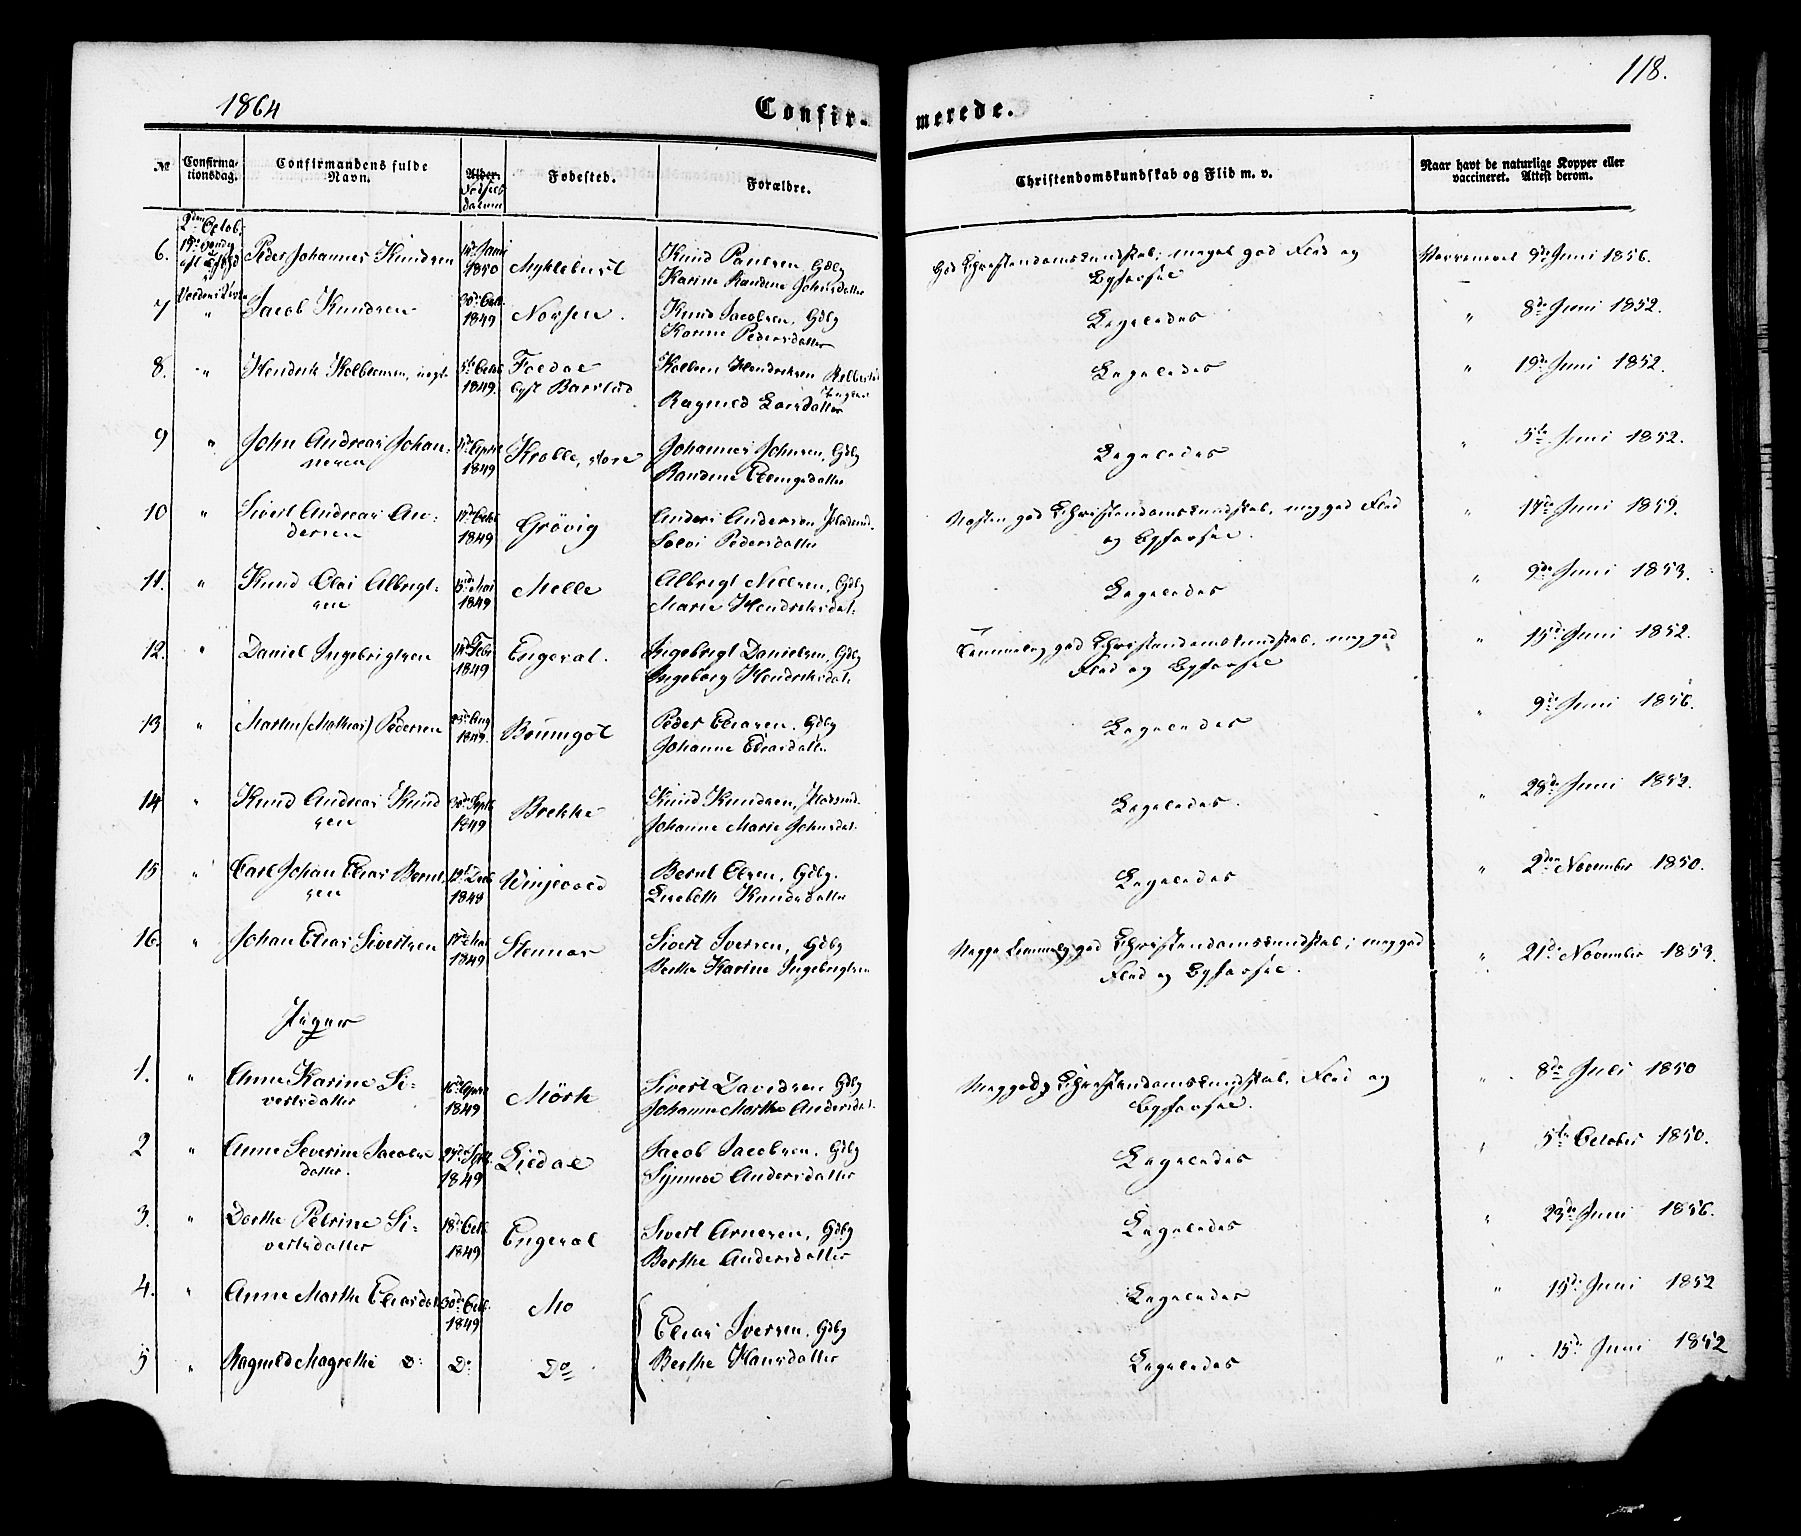 118.
1864
Confirmerede.
No
Confirmationsdag.
Confirmandens fulde Navn.
Alder.
Fødselsdatum
Fødested.
Forældre.
Christendomskundskab og Flid m. v.
Naar havt de naturlige Kopper eller vaccineret. Attest derom.
2den Octob.
19de Søndag
6. Peder Johannes Knudsen 1850 Myklebust Knud Paulsen Gdbr
Karine Johnsdatter
God Christendomskundskab; meget god Flid og Opførsel
9de Juni 1856.
7 " Jacob Knudsen 1849 Norsen. Knud Jacobsen, Gdbr
Pedersdatter
Ligeledes
" 8de Juni 1852.
8. " Hendrik 1849. Hendriksen
Ragnild Larsdatter
Ligeledes
" 19de Juni 1852.
9 " John Andreas Johannesen April 1849 Krolle, store Johannes Johnsen, Gdbr
Ligeledes
" 5te Juni 1852.
10 " Sivert Andreas Andersen 17de Octb 1849 Grövig Anders Andersen
Pedersdatter
Næsten god Christendomskundskab, meg god Flid og Opførsel.
" 17de Juni 1859.
11. " Knud Olai Albrigtsen Mai 1849 Melle Albrigt Nielsen, Gdbr
Marie Hendriksdat.
Ligeledes
" 9de Juni 1853.
12. " Daniel Ingebrigtsen Febr 1849 Engeral. Ingebrigt Danielsen, Gdbr
Ingeborg Hendriksdat.
Temmelig god Christendomskundskab, meg god Flid og Opførsel
" 15de Juni 1852.
13 " Martin (Mathias) Pedersen Aug 1849. Peder Eliasen, Gdbr
Johanne Eliasdatter
Ligeledes
" 9de Juni 1856.
14 " Knud Andreas Knudsen Sept 1849 Brekke Knud Knudsen,
Johanne Marie Johnsdat.
Ligeledes.
" 28de Juni 1852.
15 " Carl Johan Elias Berntsen 1849 Vinjevold Bernt Olsen, Gdbr.
Lisebeth Knudsdatter
Ligeledes
" 2den November 1850.
16. " Johan Elias Sivertsen Mai 1849 Stennes Sivert Iversen, Gdbr
Berthe Karine Ingebrigtsen
god Christendomskundskab; meg god Flid og Opførsel.
" 21de November 1853.
Piger
1. " Anne Karine Sivertsdatter 16de April 1849 Mörk Sivert Davidsen Gdbr
Johanne Marthe Andersdat.
Meg god Christendomskundskab, Flid og Opførsel.
" 8de Juli 1850
2 " Anne Severine Jacobsdatter. 1849 Liedal Jacob Jacobsen, Gdbr
Synnøe Andersdatter
Ligeledes
" 5te October 1850.
3. " Dorthe Petrine Sivertsdatter 18de Octb 1849 Engeral Sivert Arnesen, Gdbr
Berthe Andersdatter
Ligeledes
" 23de Juni 1856.
4. " Anne Marthe Eliasdat 30de Octb. 1849 Mo
Elias Iversen, Gdbr
Berthe Hansdatter
Ligeledes
" 15de Juni 1852
5 " Ragnild Magrethe Do Do Do
Ligeledes
" 15de Juni 1852